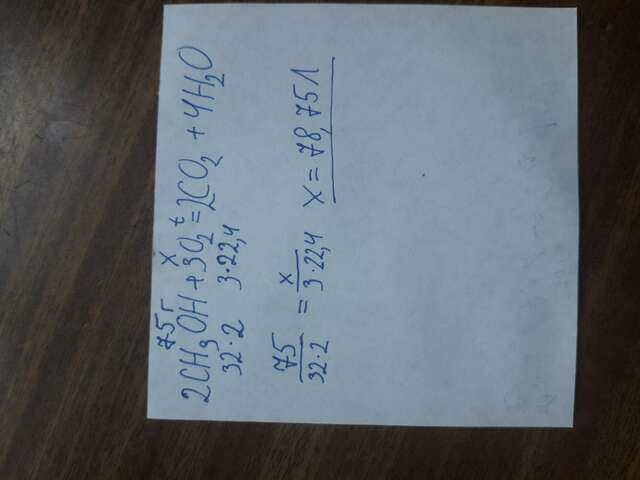 75 г x
2CH₃OH + 3O₂ =ᵗ 2CO₂ + 4H₂O
32·2 3·22,4
75/32·2 = x/3·22,4 x = 78,75 л